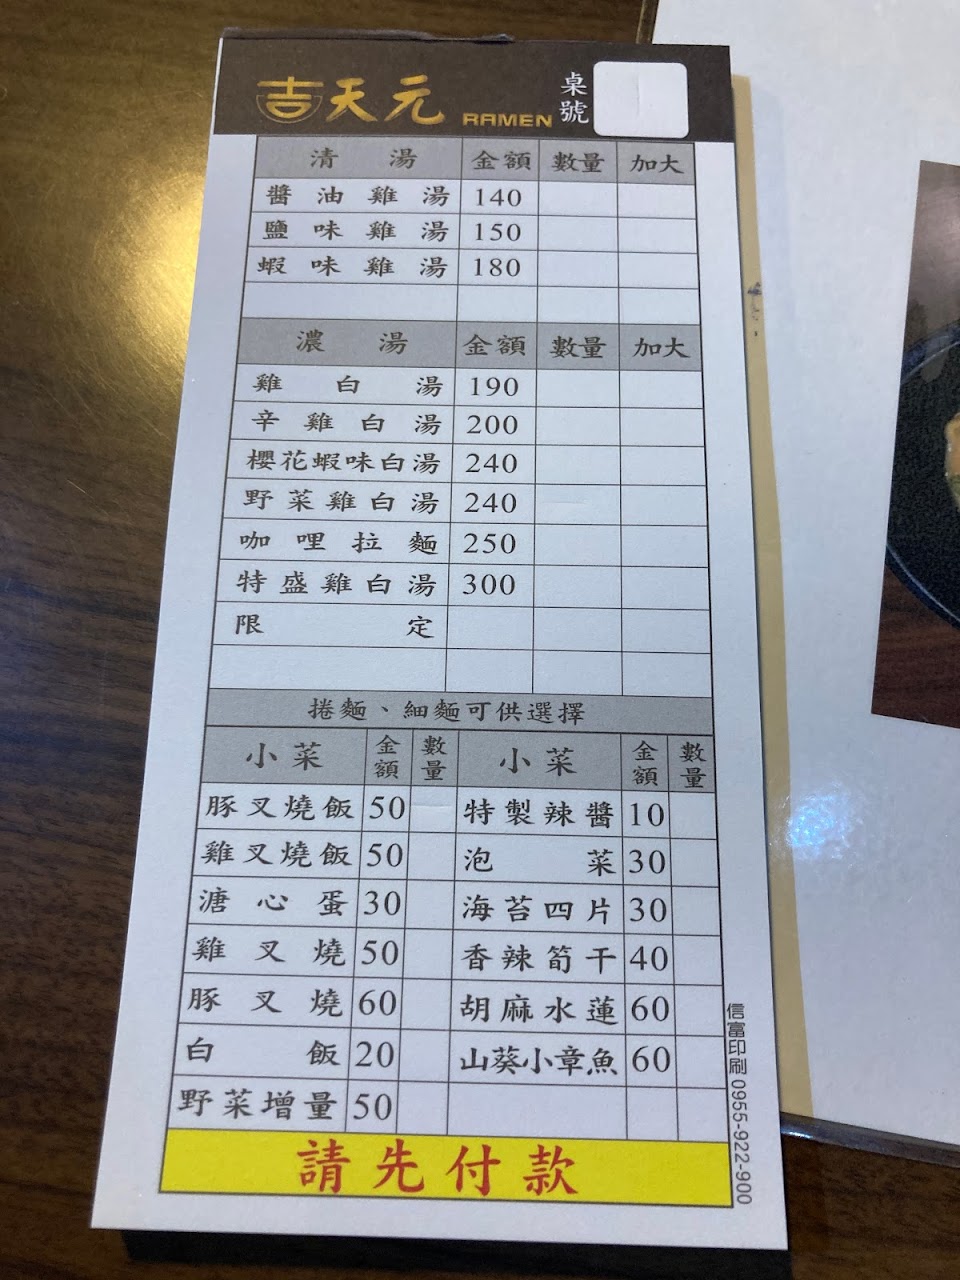 吉天元 RAMEN 桌號
清湯 金額 數量 加大
醬油雞湯 140
鹽味雞湯 150
蝦味雞湯 180
濃湯 金額 數量 加大
雞白湯 190
辛雞白湯 200
櫻花蝦味白湯 240
野菜雞白湯 240
咖哩拉麵 250
特盛雞白湯 300
限定
捲麵、細麵可供選擇
小菜 金額 數量 小菜 金額 數量
豚叉燒飯 50 特製辣醬 10
雞叉燒飯 50 泡菜 30
溏心蛋 30 海苔四片 30
雞叉燒 50 香辣筍干 40
豚叉燒 60 胡麻水蓮 60
白飯 20 山葵小章魚 60
野菜增量 50
請先付款
信富印刷 0955-922-900